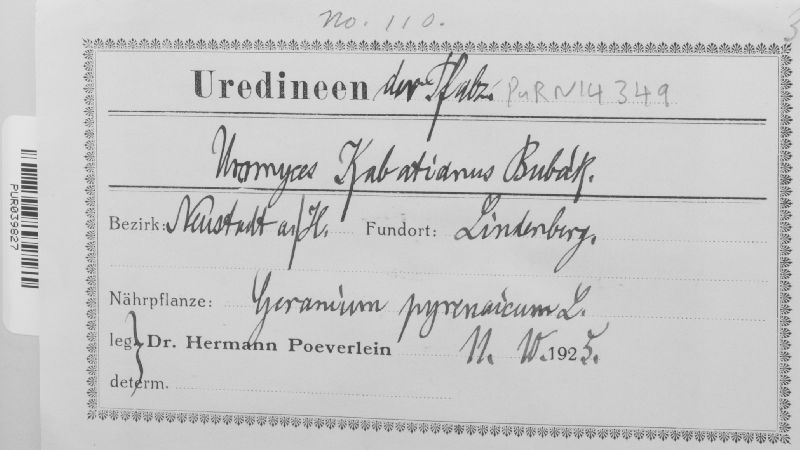 No. 110.
Uredineen der Pfalz. PuR N14349
Uromyces Kabatianus Bubák.
Bezirk: Neustadt a/H. Fundort: Lindenberg.
Nährpflanze: Geranium pyrenaicum L.
leg. Dr. Hermann Poeverlein 11. 1925.
determ.
PUR039927